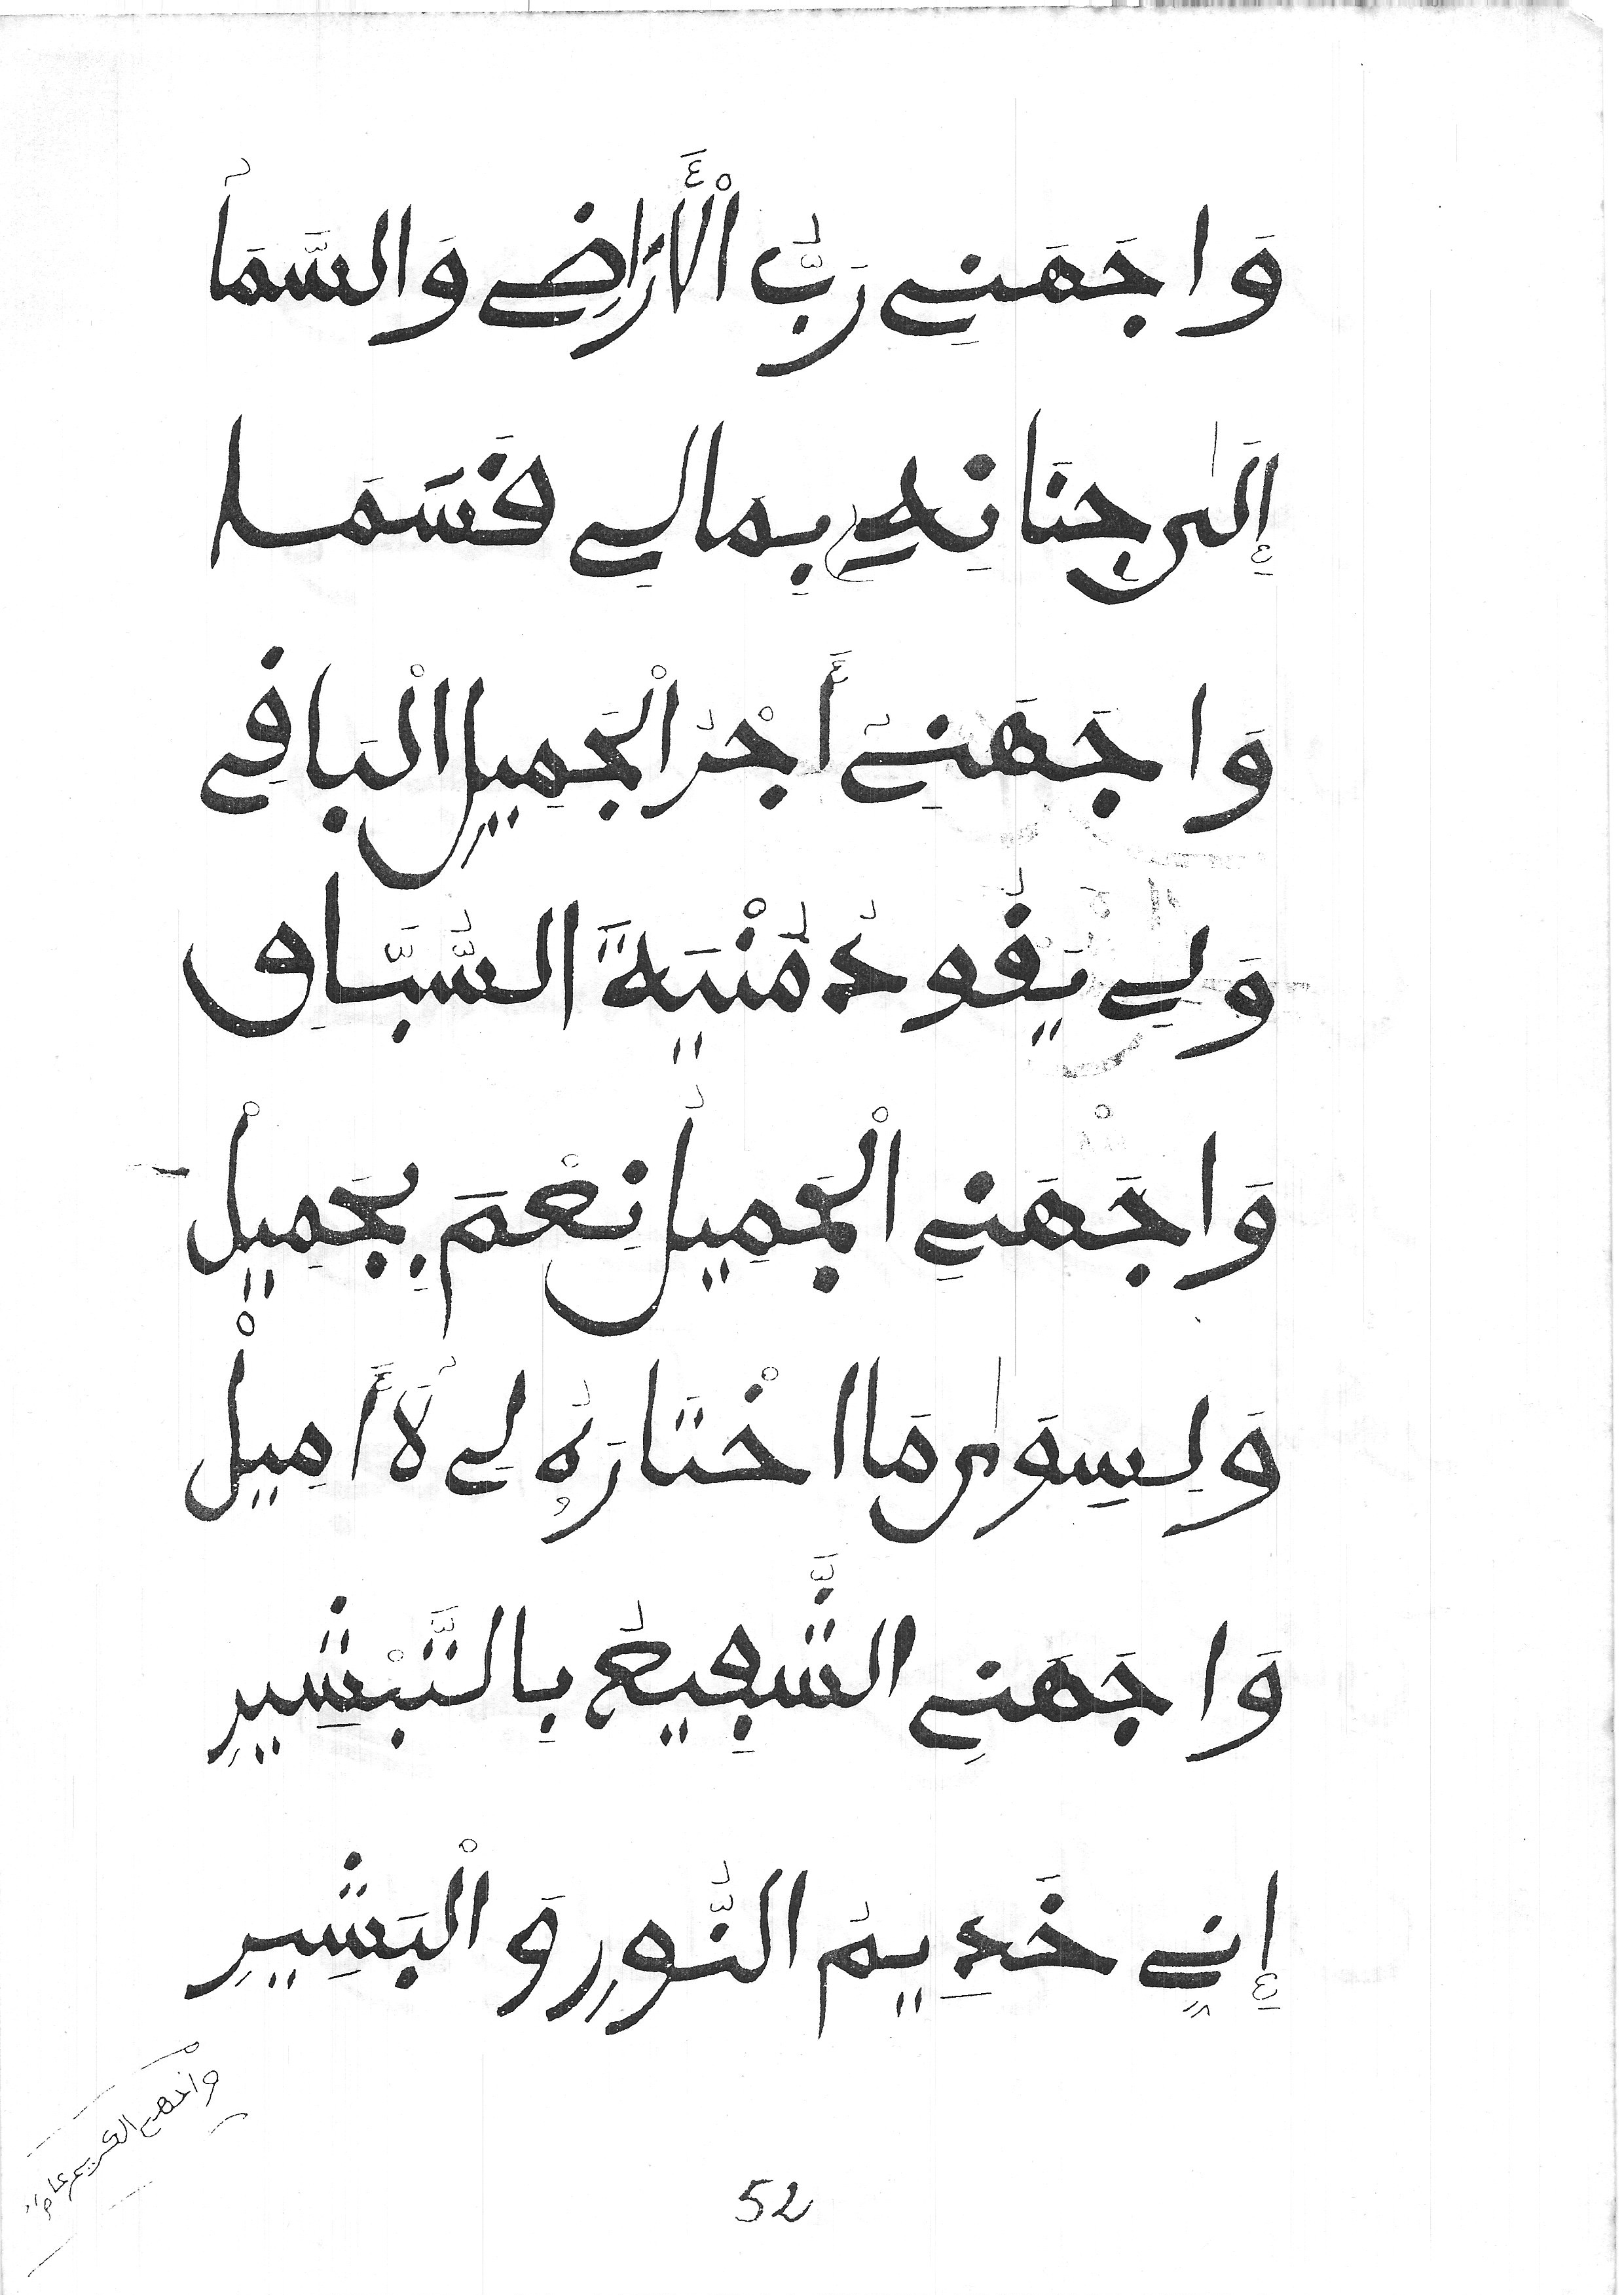 وَاجَهَنِي رَبُّ الْأَرَاضِي وَالسَّمَا
إِلَى جِنَانِهِ بِمَالِي قَسَمَا
وَاجَهَنِي أَجْرُ الْجَمِيلِ الْبَاقِي
وَلِي يَقُودُ مُنْيَةَ السُّبَّاقِ
وَاجَهَنِي الْجَمِيلُ نِعْمَ بِجَمِيلْ
وَلِسِوَى مَا اخْتَارَهُ لِي لَا أَمِيلْ
وَاجَهَنِي الشَّفِيعُ بِالتَّبْشِيرِ
إِنِّي خَدِيمُ النُّورِ وَالْبَشِيرِ
واجهني الكريم
52